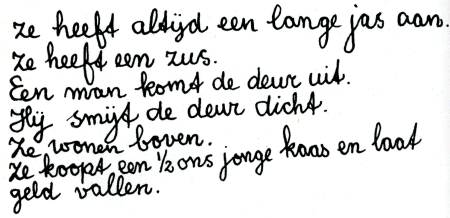 ze heeft altijd een lange jas aan.
Ze heeft een zus.
Een man komt de deur uit.
Hij smijt de deur dicht.
Ze wonen boven.
Ze koopt een ½ ons jonge kaas en laat
geld vallen.